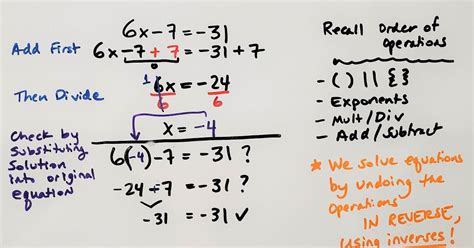 6x - 7 = -31
Add First
6x - 7 + 7 = -31 + 7
0
Then Divide
1
6x = -24
6 6
x = -4
Check by
Substituting
Solution
into original
equation
6(-4) - 7 = -31 ?
-24 - 7 = -31 ?
-31 = -31 ✓
Recall Order of
Operations
- ( ) || { }
- Exponents
- Mult/Div
- Add/Subtract
* We solve equations
by undoing the
Operations
IN REVERSE,
Using inverses!